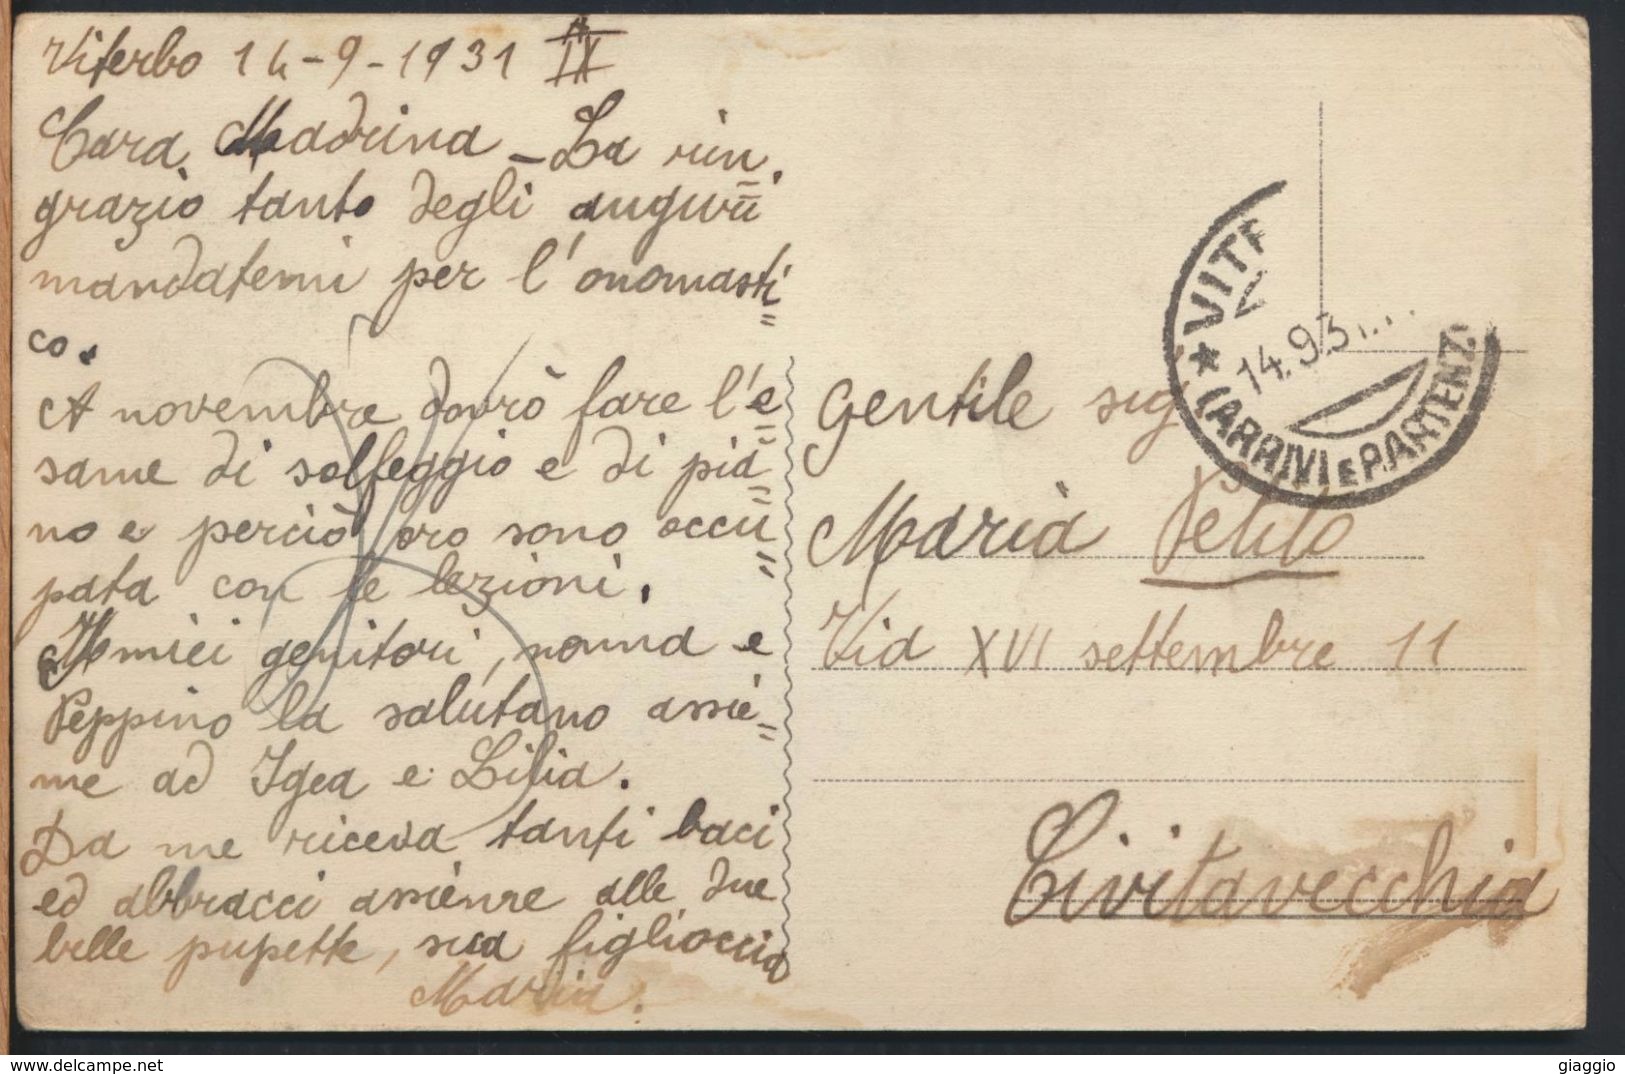 Viterbo 14-9-1931 IX
Cara Madrina - La rin=
grazio tanto degli augurii
mandatemi per l'onomasti=
co.
A novembre dovrò fare l'e=
same di solfeggio e di pia=
no e perciò ora sono occu=
pata con le lezioni.
I miei genitori, nonna e
Peppino la salutano assie=
me ad Igea e Lilia.
Da me riceva tanti baci
ed abbracci assieme alle due
belle pupette, sua figlioccia
Maria.
Gentile sig
Maria Petito
Via XVI settembre 11
Civitavecchia
VITE
14.9.31
(ARRIVI E PARTENZ
giaggio